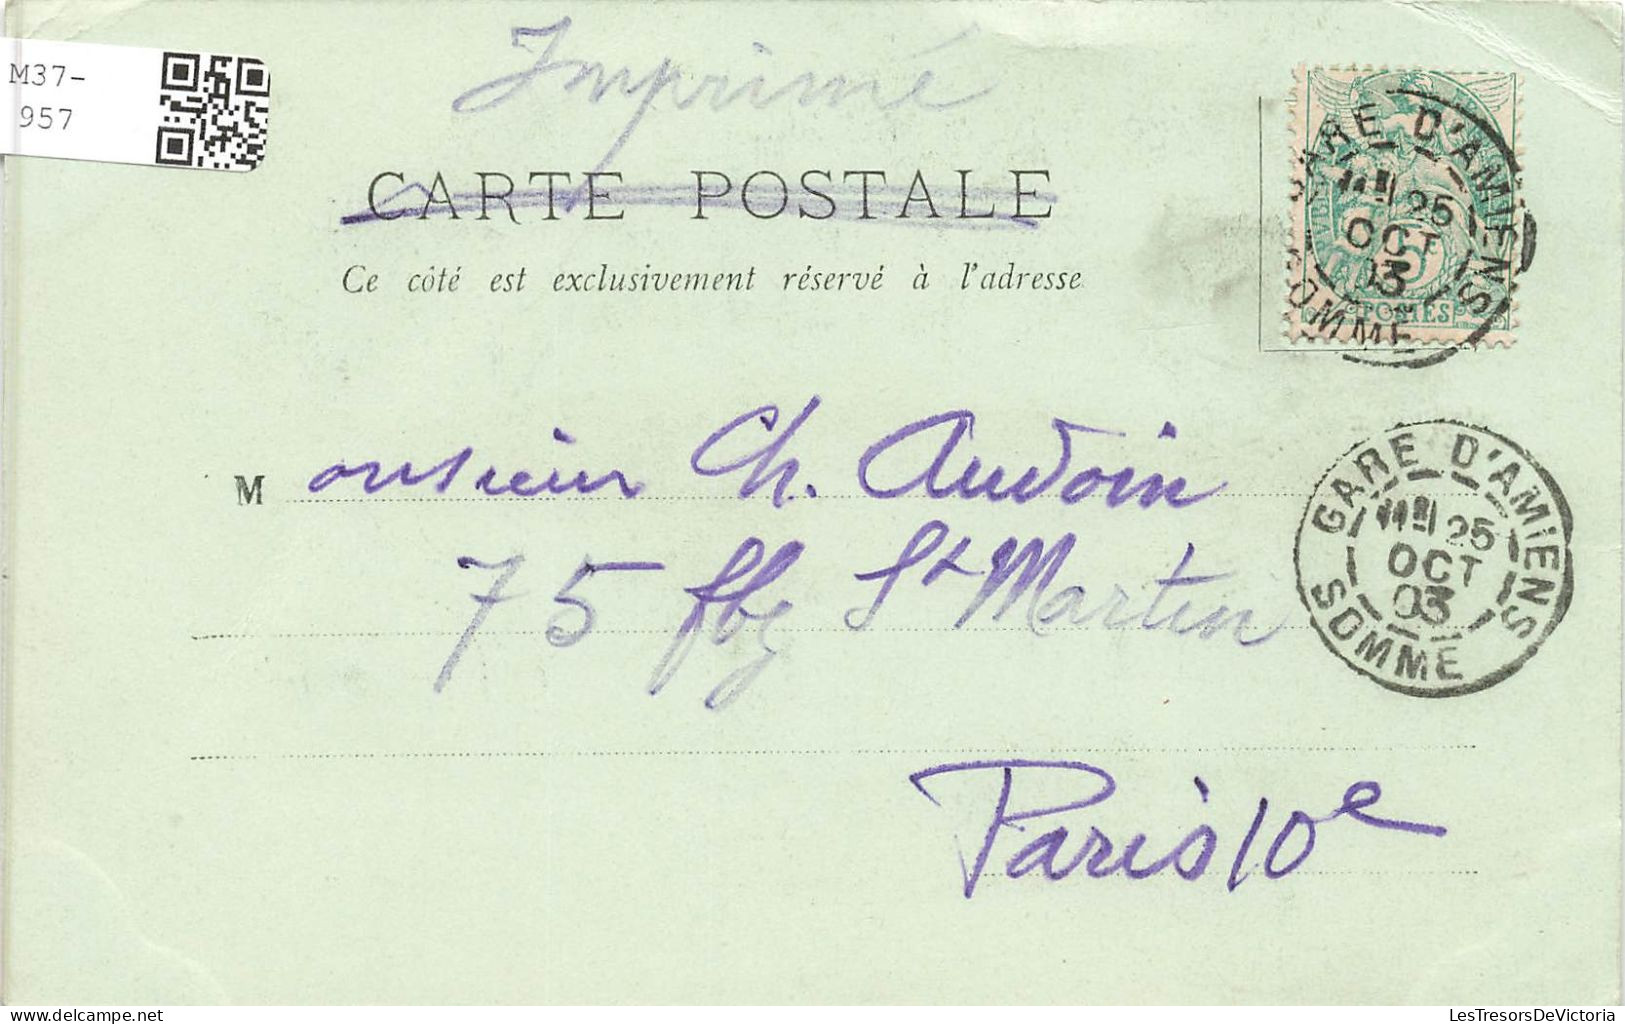 M37-
957
Imprimé
CARTE POSTALE
Ce côté est exclusivement réservé à l'adresse
5
POSTES
GARE D'AMIENS
25
OCT
03
SOMME
Monsieur Ch. Audoin
GARE D'AMIENS
25
OCT
03
SOMME
75 fbg St Martin
Paris 10e
LesTresorsDeVictoria
delcampe.net